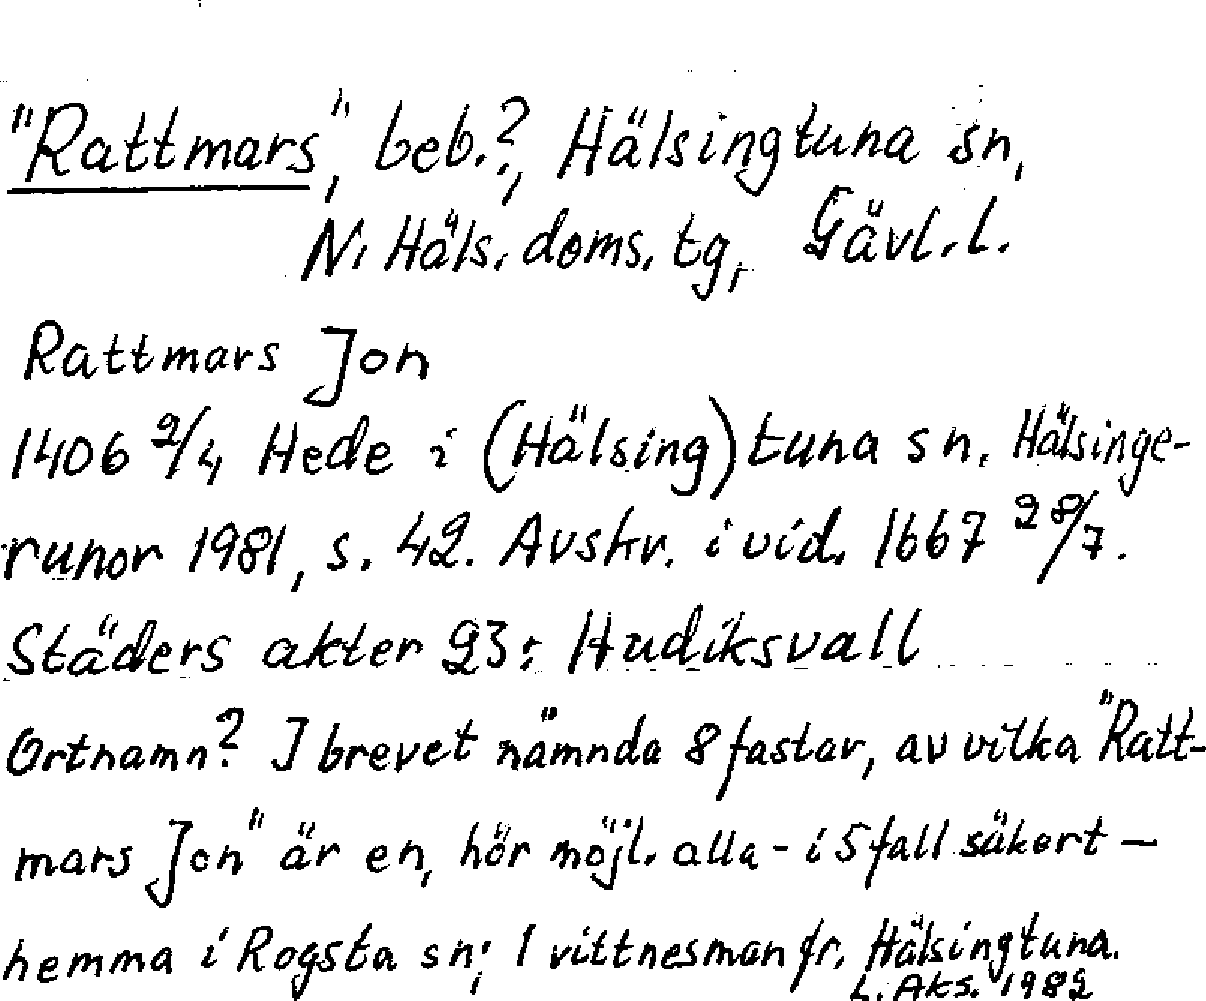 "Rattmars", beb.?, Hälsingtuna sn,
N. Häls. doms. tg, Gävl. l.
Rattmars Jon
1406 2/4 Hede i (Hälsing)tuna sn. Hälsinge-
runor 1981, s. 42. Avskr. i vid. 1667 28/7.
Städers akter 23: Hudiksvall
Ortnamn? I brevet nämnda 8 fastar, av vilka "Ratt-
mars Jon" är en, hör möjl. alla - i 5 fall säkert —
hemma i Rogsta sn; 1 vittnesman fr. Hälsingtuna.
L. Aks. 1982